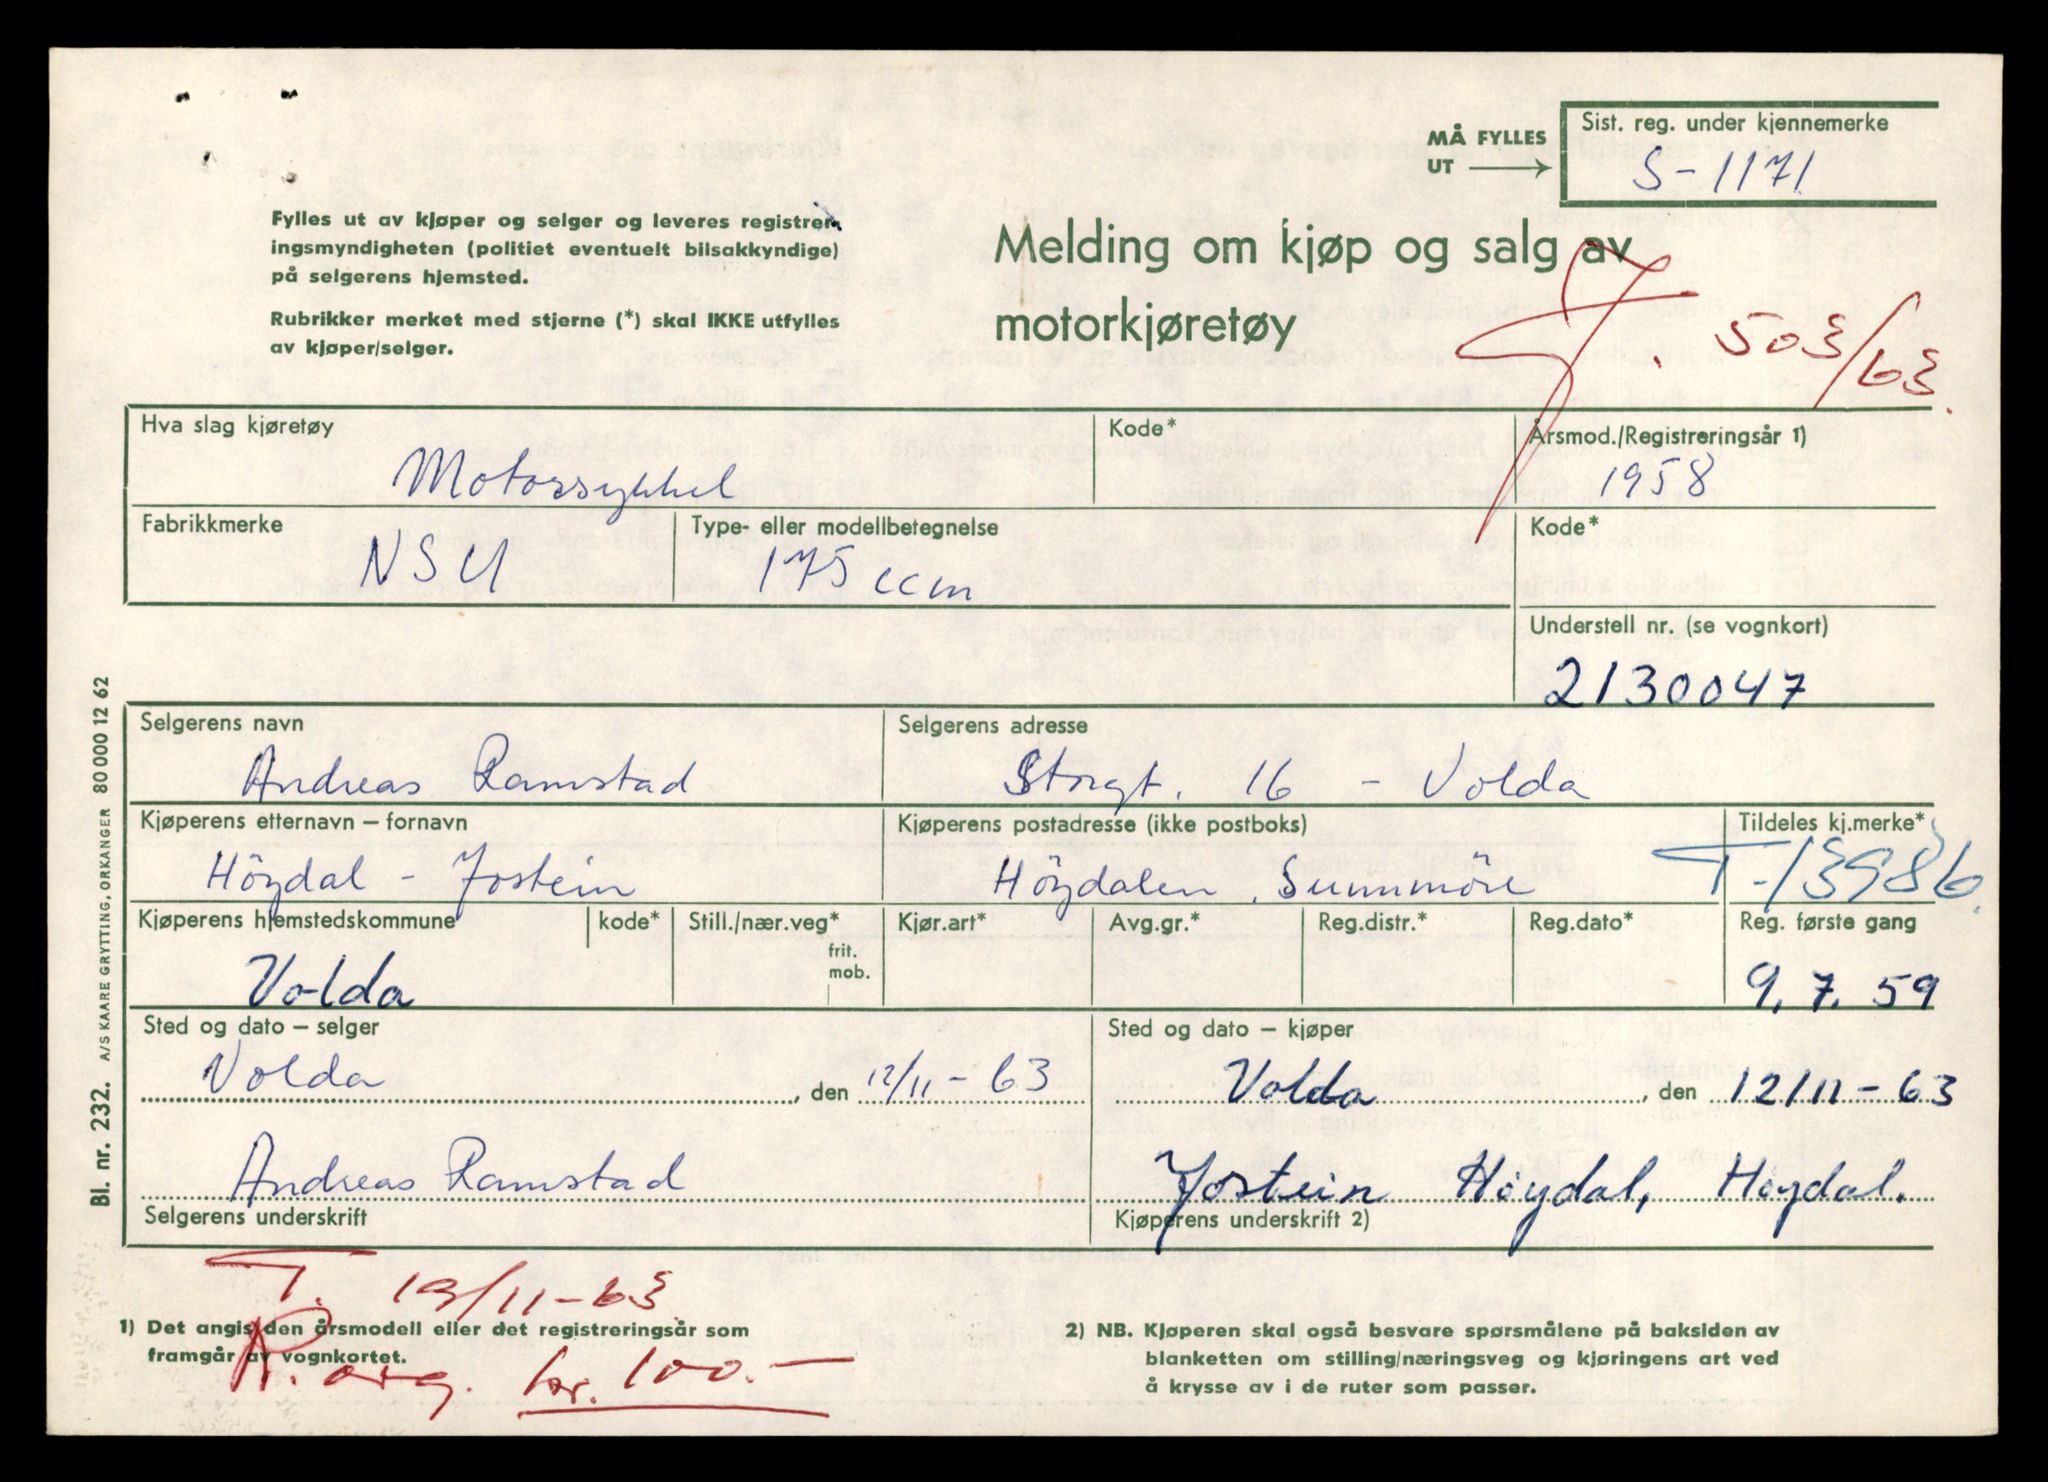 MÅ FYLLES
UT
Sist. reg. under kjennemerke
S-1171
Fylles ut av kjøper og selger og leveres registrer-
ingsmyndigheten (politiet eventuelt bilsakkyndige)
på selgerens hjemsted.
Rubrikker merket med stjerne (*) skal IKKE utfylles
av kjøper/selger.
Melding om kjøp og salg av
motorkjøretøy
J. 503/63.
Hva slag kjøretøy
Kode*
Årsmod./Registreringsår 1)
Motorsykkel
1958
Fabrikkmerke
Type- eller modellbetegnelse
Kode*
NSU
175 ccm
Understell nr. (se vognkort)
2130047
Selgerens navn
Selgerens adresse
Andreas Ramstad
Storgt. 16 - Volda
Kjøperens etternavn – fornavn
Kjøperens postadresse (ikke postboks)
Tildeles kj.merke*
Höydal - Jostein
Höydalen, Sunnmöre
T-13986.
Kjøperens hjemstedskommune
kode*
Still./nær.veg*
frit.
mob.
Kjør.art*
Avg.gr.*
Reg.distr.*
Reg.dato*
Reg. første gang
Volda
9. 7. 59
Sted og dato – selger
Sted og dato – kjøper
Volda, den 12/11-63
Volda, den 12/11-63
Andreas Ramstad
Jostein Höydal, Höydal.
Selgerens underskrift
Kjøperens underskrift 2)
T. 19/11-63
1) Det angis den årsmodell eller det registreringsår som
framgår av vognkortet.
R. org. kr. 100.-
2) NB. Kjøperen skal også besvare spørsmålene på baksiden av
blanketten om stilling/næringsveg og kjøringens art ved
å krysse av i de ruter som passer.
Bl. nr. 232. A/S KAARE GRYTTING, ORKANGER 80 000 12 62